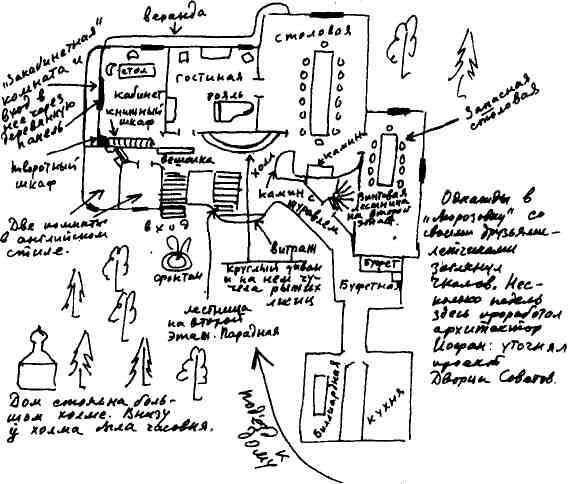 веранда
столовая
"Закабинетная"
комната и
вход в
нее через
деревянную
панель
стол
кабинет
книжный
шкаф
гостиная
рояль
Запасная
столовая
творотный
шкаф
вешалка
холл
камин
камин с
журавлем
Винтовая
лестница
на второй
этаж
Две комнаты
в английском
стиле.
вход
фронтон
витраж
Круглый диван
и на нем чу-
чела рыжих
лисиц
лестница
на второй
этаж. Парадная
буфет
Буфетная
Однажды в
"Морозовку" со
своими друзьями-
летчиками
заглянул
Чкалов. Нес-
колько недель
здесь проработал
архитектор
Иофан: уточнял
проект
Дворца Советов.
Дом стоял на боль-
шом холме. Внизу
у холма была часовня.
подъезд к
дому
Биллиардная
кухня